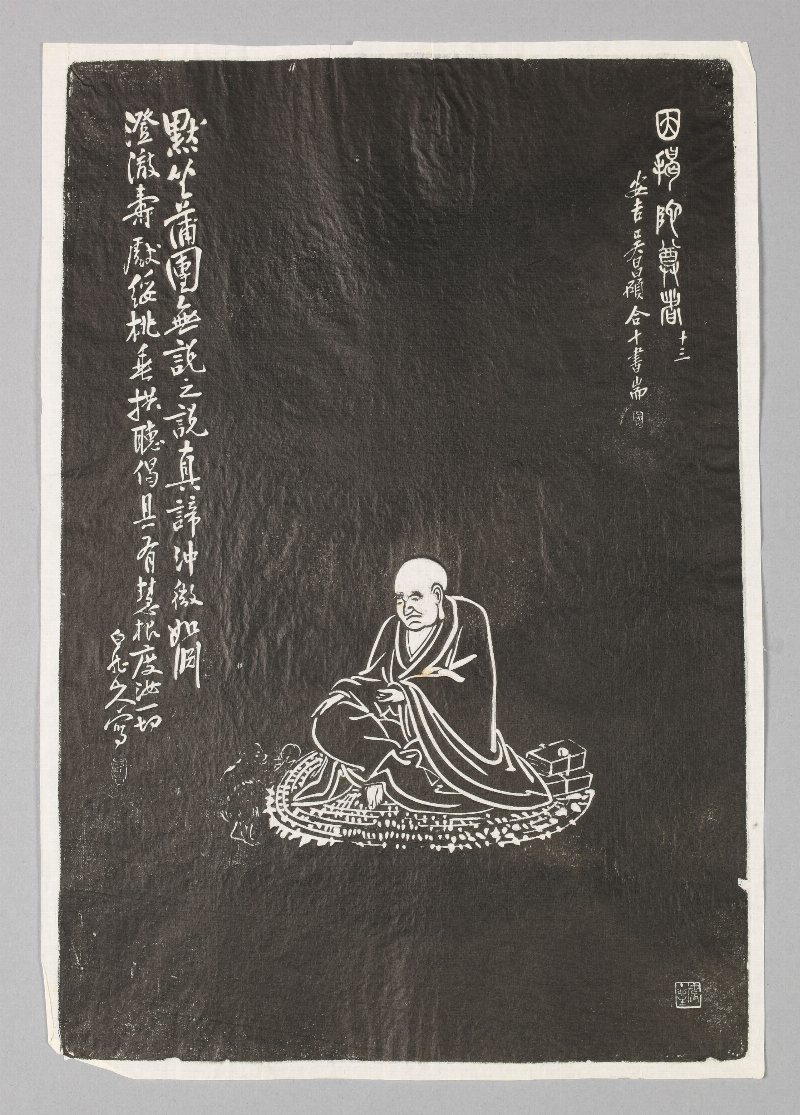 因揭陀尊者 十三
安吉吳昌碩合十書耑
默坐蒲團無說之說真諦沖微如淵
澄澈壽獻綏桃垂拱聽偈具有慧根度汝一切
白龍山人寫